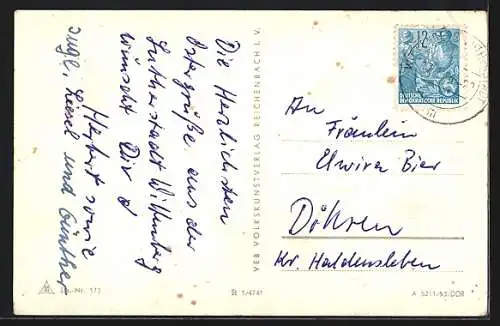 Die Herzlichsten
Ostergrüße aus der
Lutherstadt Wittenberg
wünscht Dir
Herbert sowie
Liesel und Günther
VEB VOLKSKUNSTVERLAG REICHENBACH I. V.
12
DEUTSCHE
DEMOKRATISCHE REPUBLIK
An
Fräulein
Elwira Bier
Döhren
Kr. Haldensleben
A 521/55/DDR